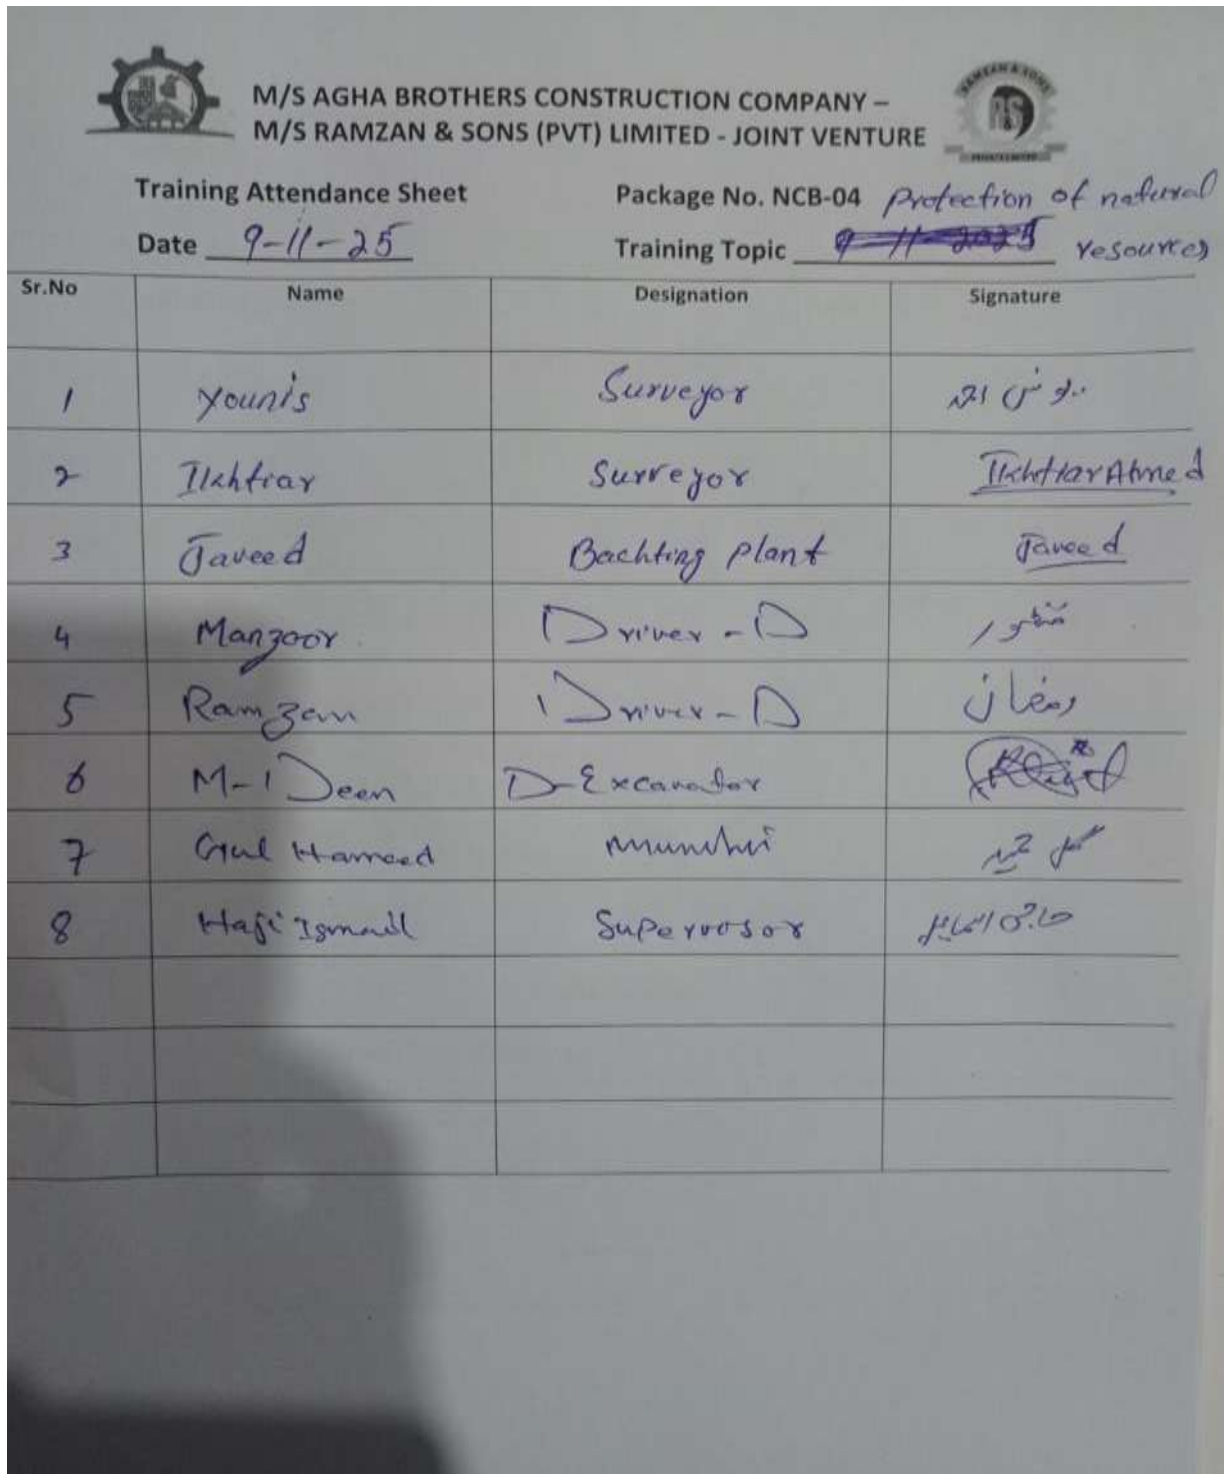 M/S AGHA BROTHERS CONSTRUCTION COMPANY –
M/S RAMZAN & SONS (PVT) LIMITED - JOINT VENTURE
RAMZAN & SONS
R&S
PRIVATE LIMITED
Training Attendance Sheet
Package No. NCB-04 Protection of natural
Date 9-11-25
Training Topic 9-11-2025 resources
Sr.No Name Designation Signature
1 Younis Surveyor یونس احمد
2 Ikhtiar Surveyor Ikhtiar Ahmed
3 Javeed Bachting plant Javeed
4 Manzoor Driver-D منظور
5 Ramzan Driver-D رمضان
6 M-1 Deen D-Excavator
7 Gul Hameed Munshi گل حمید
8 Haji Ismail Supervosor حاجی اسماعیل